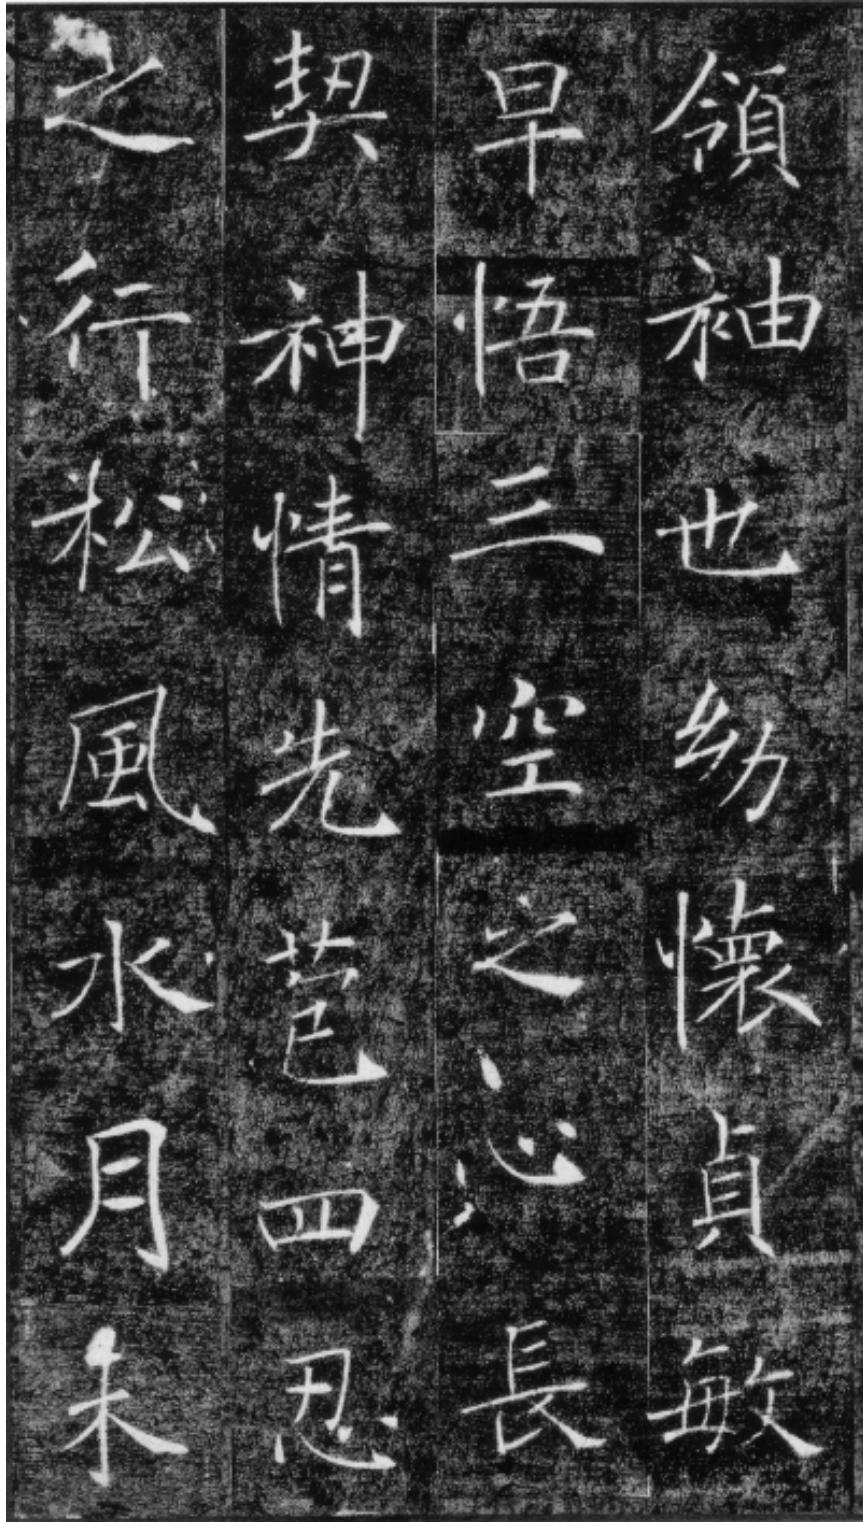 領袖也幼懷貞敏
早悟三空之心長
契神情先苞四忍
之行松風水月未